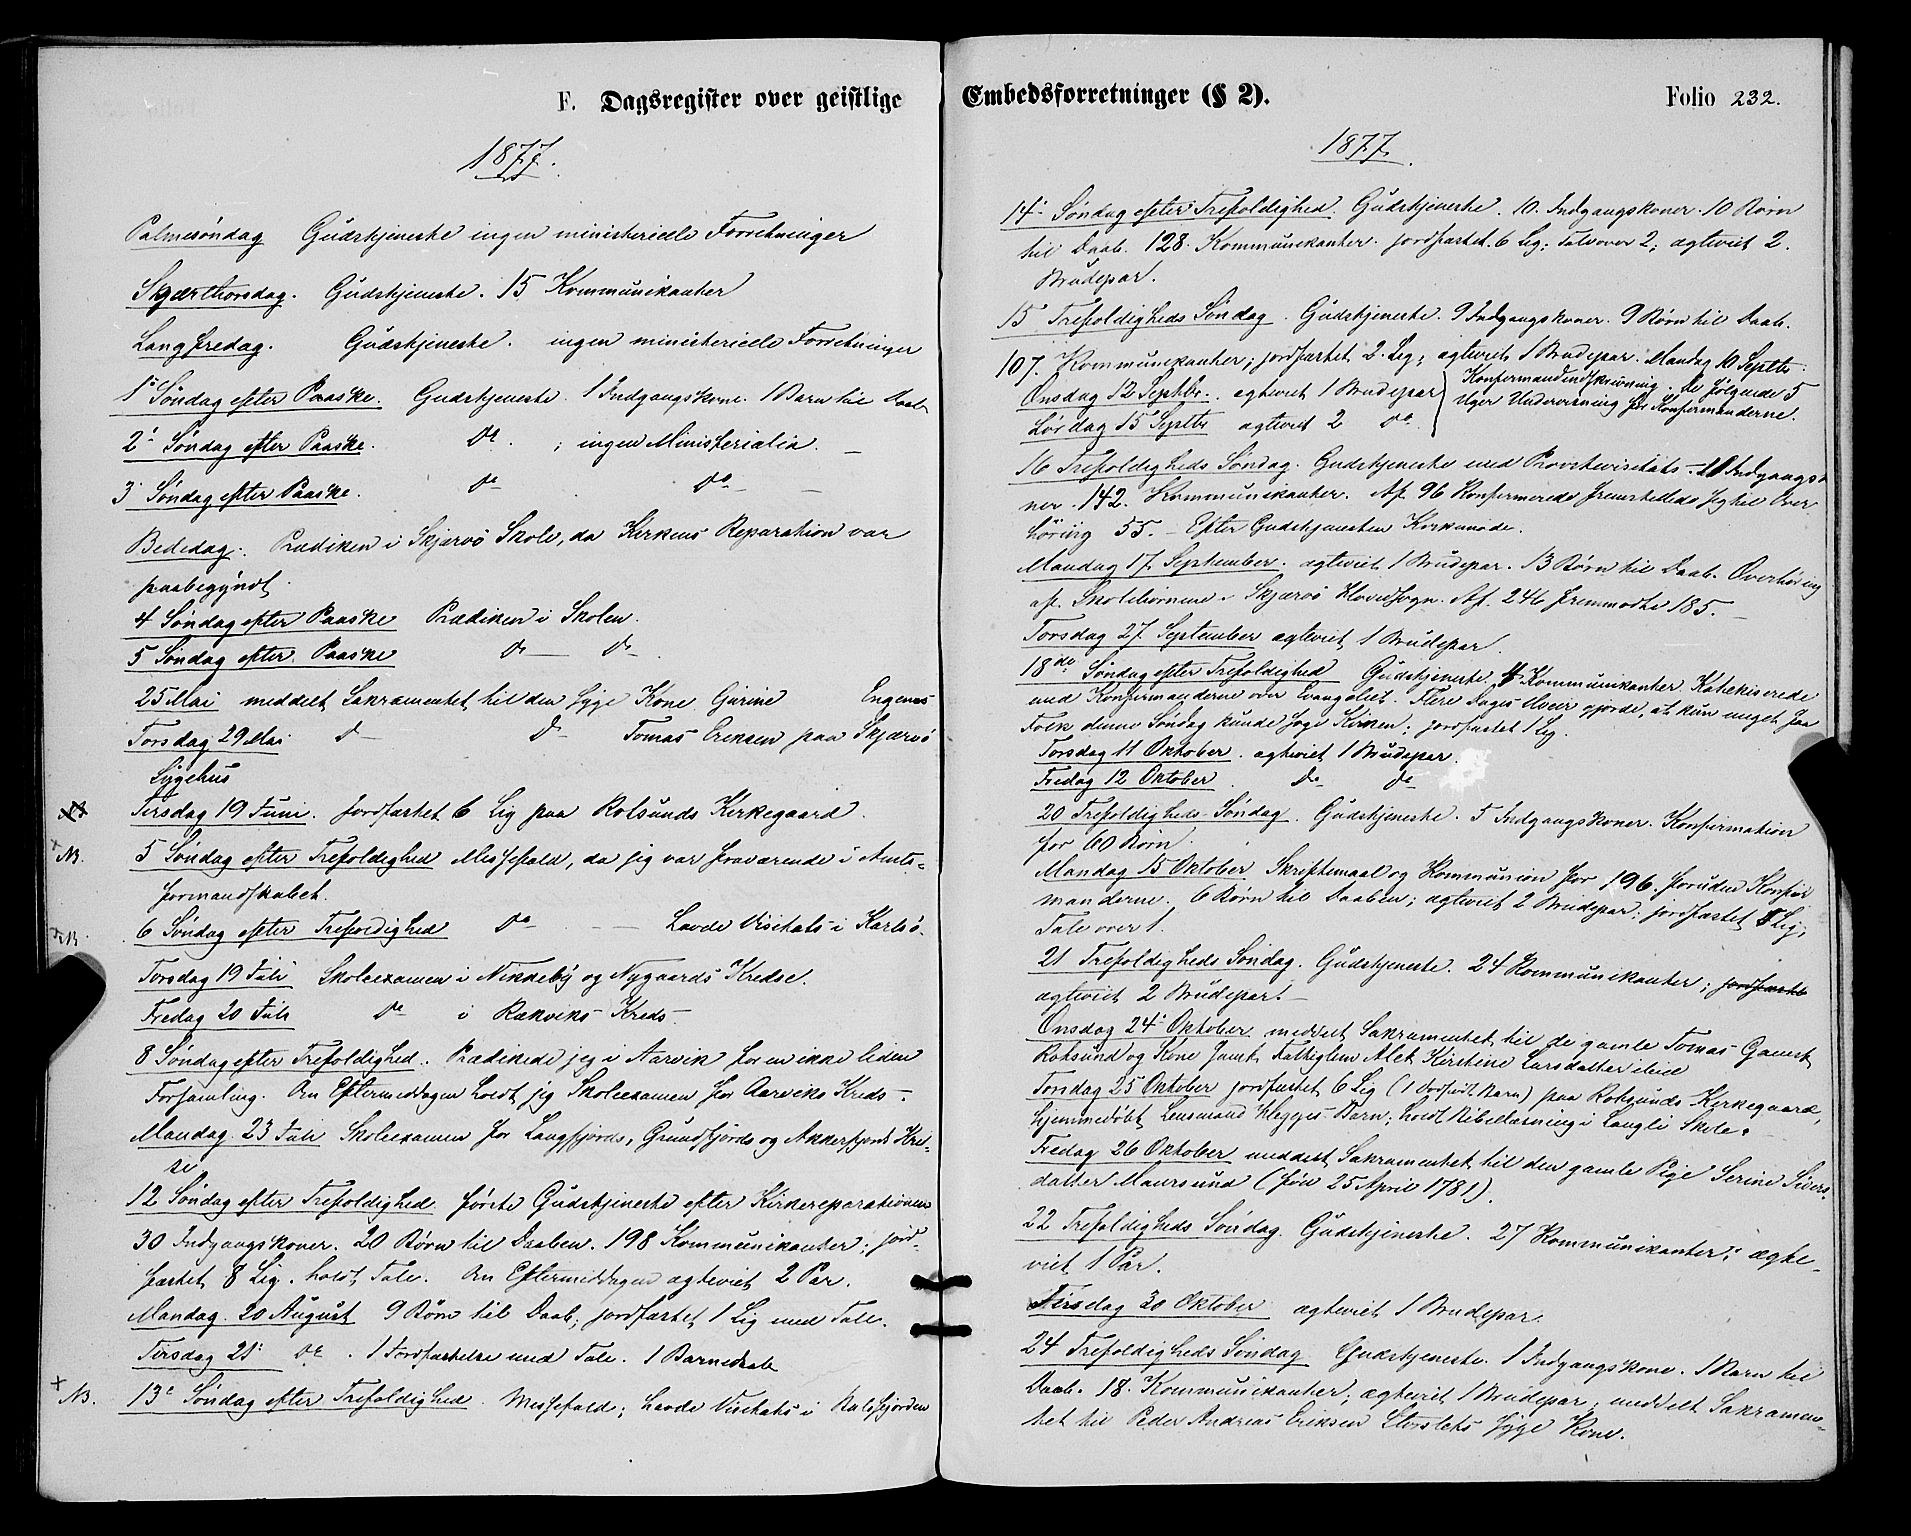 F. Dagsregister over geistlige
1877.
Palmesöndag Gudstjeneste ingen ministerielle Forretninger
Skjærthorsdag. Gudstjeneste. 15 Kommunikanter
Langfredag. Gudstjeneste. ingen ministerielle Forretninger
1ᵉ Söndag efter Paaske. Gudstjeneste. 1 Indgangskone. 1 Barn til Daab
2ᵉ Söndag efter Paaske. Dº. ; ingen Ministerialia. –
3 Söndag efter Paaske. Dº Dº –
Bededag. Prædiken i Skjærvö Skole, da Kirkens Reparation var
paabegyndt.
4 Söndag efter Paaske Prædiken i Skolen.
5 Söndag efter Paaske Dº — Dº
25 Mai meddelt Sakramentet til den syge Kone Gurine Engenes
Torsdag 29 Mai Dº — Dº Tomas Eriksen paa Skjærvö
Sygehus
Tirsdag 19 Juni. jordfæstet 6 Lig paa Rotsunds Kirkegaard.
+ NB. 5 Söndag efter Trefoldighed Messefald, da jeg var fraværende i Amts-
formandskabet.
NB. 6 Söndag efter Trefoldighed Dº — Lavde Visitats i Karlsö.
Torsdag 19 Juli Skoleexamen i Nikkeby og Nygaards Kredse.
Fredag 20 Juli Dº i Rækviks Kreds.
8 Söndag efter Trefoldighed. Prædikede jeg i Aarvik for en ikke liden
Forsamling. Om Eftermiddagen holdt jeg Skoleexamen for Aarviks Kreds.
Mandag 23 Juli Skoleexamen for Langfjords, Grundfjords og Akkerfjords Kred-
se
12 Söndag efter Trefoldighed. förste Gudstjeneste efter Kirkereparationen
30 Indgangskoner. 20 Börn til Daaben. 198 Kommunikanter; jord-
fæstet 8 Lig. holdt Tale. Om Eftermiddagen ægteviet 2 Par.
Mandag 20 August 9 Börn til Daab; jordfæstet 1 Lig med Tale.
Tirsdag 21ᵉ Dº. 1 Jordfæstelse med Tale. 1 Barnedaab
+ NB. 13ᵉ Söndag efter Trefoldighed. Messefald; Lavde Visitats i Balsfjorden
Embedsforretninger (§ 2). Folio 232.
1877.
14ᵉ Söndag efter Trefoldighed. Gudstjeneste. 10. Indgangskoner. 10 Börn
til Daab. 128. Kommunikanter. jordfæstet. 6 Lig; Tale over 2; ægteviet 2
Brudepar.
15 Trefoldigheds Söndag. Gudstjeneste. 9 Indgangskoner. 9 Börn til Daab.
107. Kommunikanter; jordfæstet 2 Lig; ægteviet 1 Brudepar. Mandag 10 Septbr.
Onsdag 12 Septbr. ægteviet 1 Brudepar Konfirmandindskrivning. De fölgende 5
Lördag 15 Septbr ægteviet 2 Dº Uger Undervisning for Konfirmanderne.
16 Trefoldigheds Söndag. Gudstjeneste med Provstevisitats. Indgangsko-
ner. 142. Kommunikanter. Af 96 Konfirmerede fremstillede sig til Over
höring 55. – Efter Gudstjenesten Kirkemöde.
Mandag 17 September. ægteviet 1 Brudepar. 13 Börn til Daab. Overhöring
af Skolebörnene i Skjærvö Hovedsogn. Af 246 fremmödte 185. –
Torsdag 27 September ægteviet 1 Brudepar.
18ᵈᵉ Söndag efter Trefoldighed Gudstjeneste, 4 Kommunikanter Katekiserede
med Konfirmanderne over Evangeliet. Flere Dages Uveir gjorde, at kun meget faa
Folk denne Söndag kunde söge Kirken; jordfæstet 1 Lig.
Torsdag 11 Oktober. ægteviet 1 Brudepar.
Fredag 12 Oktober. Dº Dº
20 Trefoldigheds Söndag. Gudstjeneste. 5 Indgangskoner. Konfirmation
for 60 Börn.
Mandag 15 Oktober Skriftemaal og Kommunion for 196. foruden Konfir
manderne. 6 Börn til Daaben; ægteviet 2 Brudepar; jordfæstet Lig;
Tale over 1.
21 Trefoldigheds Söndag. Gudstjeneste. 24 Kommunikanter; jordfæstet
ægteviet 2 Brudepar. –
Onsdag 24ᵉ Oktober meddelt Sakramentet til de gamle Tomas
Rotsund og Kone samt Fattiglem Alet Kirstine Larsdatter ibid
Torsdag 25 Oktober jordfæstet 6 Lig (1 dödfödt Barn) paa Rotsunds Kirkegaard,
hjemmedöbt Lensmand Barn; holdt Bibellæsning i Langli Skole.
Fredag 26 Oktober meddelt Sakramentet til den gamle Pige Serine Sivers
datter Maursund (föd 25 April 1781).
22 Trefoldigheds Söndag. Gudstjeneste. 27 Kommunikanter; ægte-
viet 1 Par.
Tirsdag 30 Oktober ægteviet 1 Brudepar.
24 Trefoldigheds Söndag Gudstjeneste. 1 Indgangskone. 1 Barn til
Daab. 18. Kommunikanter; ægteviet 1 Brudepar; meddelt Sakramen-
tet til Peder Andreas Eriksen Storslets syge Kone.